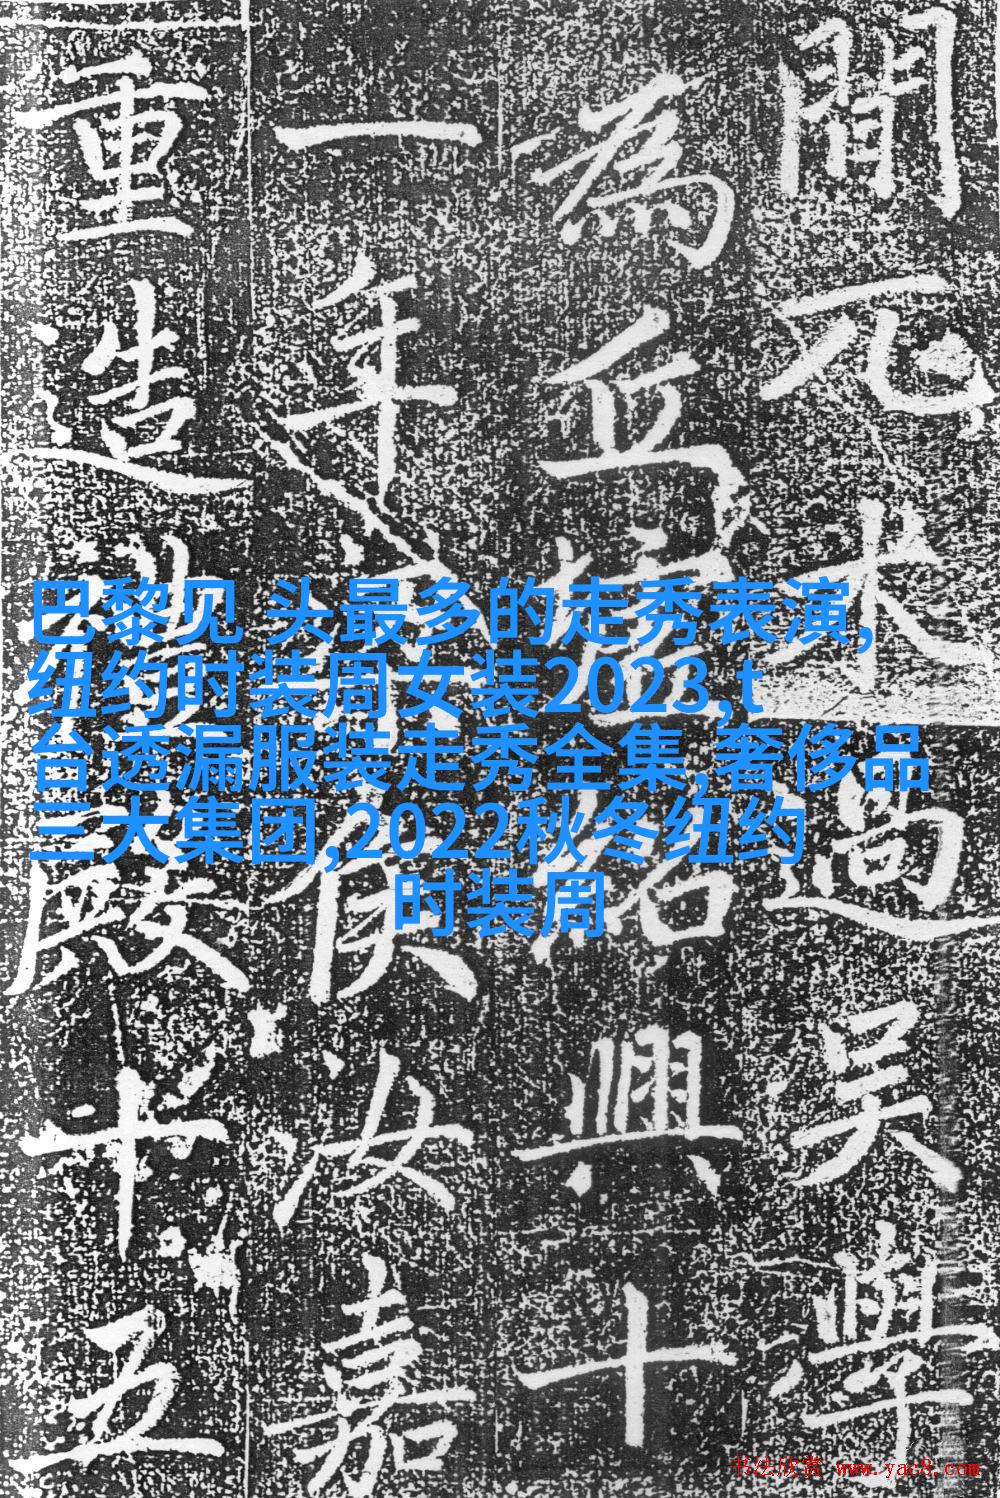 間元末過吳學
為丘墟紹興十
一年侯汝嘉
重造殿十五
巴黎见 头最多的走秀表演,
纽约时装周女装2023,t
台透漏服装走秀全集,奢侈品
三大集团,2022秋冬纽约
时装周
书法欣赏 www.yac8.com